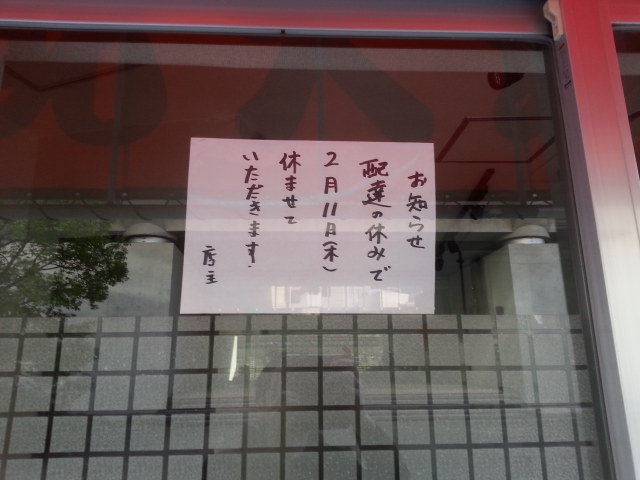 お知らせ
配達の休みで
2月11日(木)
休ませて
いただきます.
店主